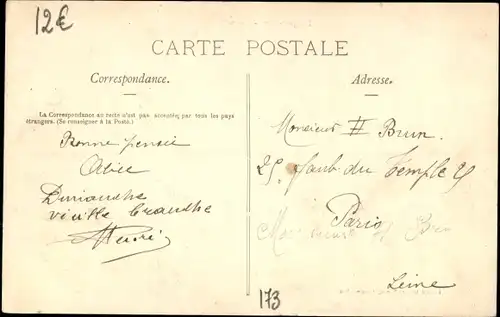 12€
CARTE POSTALE
Correspondance.
Adresse.
La Correspondance au recto n'est pas acceptée par tous les pays
étrangers. (Se renseigner à la Poste.)
Bonne pensée
Dimanche
vieille branche
Henri
Monsieur H Brun
25 Faub du Temple 25
Paris
Seine
173